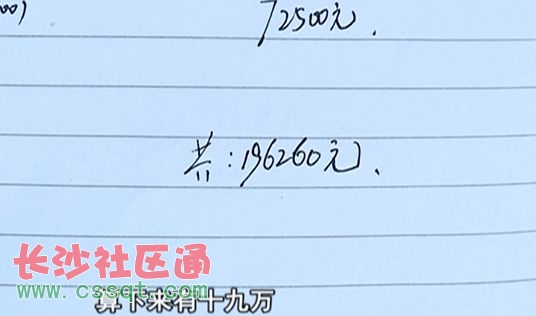 72500元.
共:196260元.
长沙社区通
www.cssqt.com
算下来有十九万